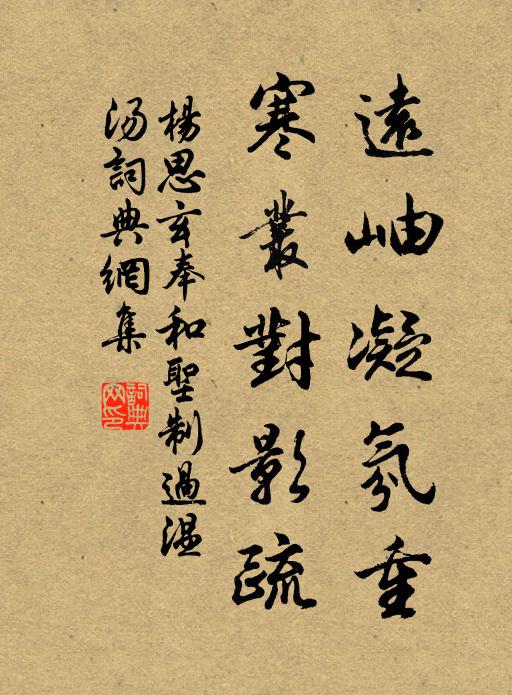 遠岫凝氛重
寒叢對影疏
楊思玄奉和聖制過溫
湯詞典網集
詞典
网印